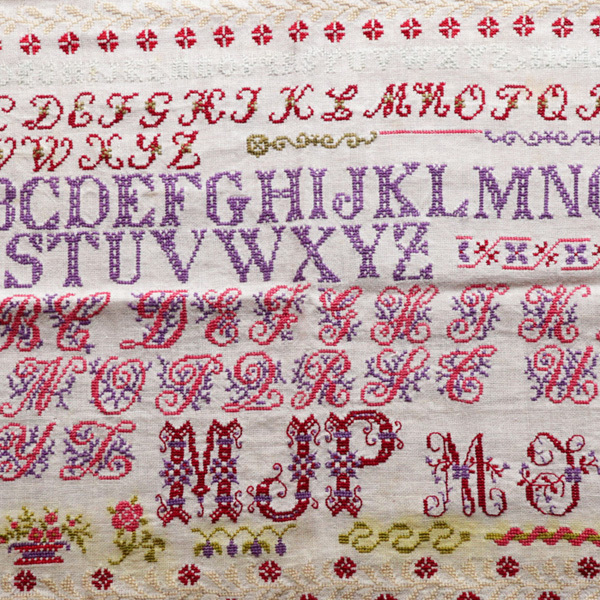 C D E F G H I K L M N O P Q R
V W X Y Z
BCDEFGHIJKLMNO
STUVWXYZ
B C D E F G H I K
N O P Q R S T U
Y Z MJP M S